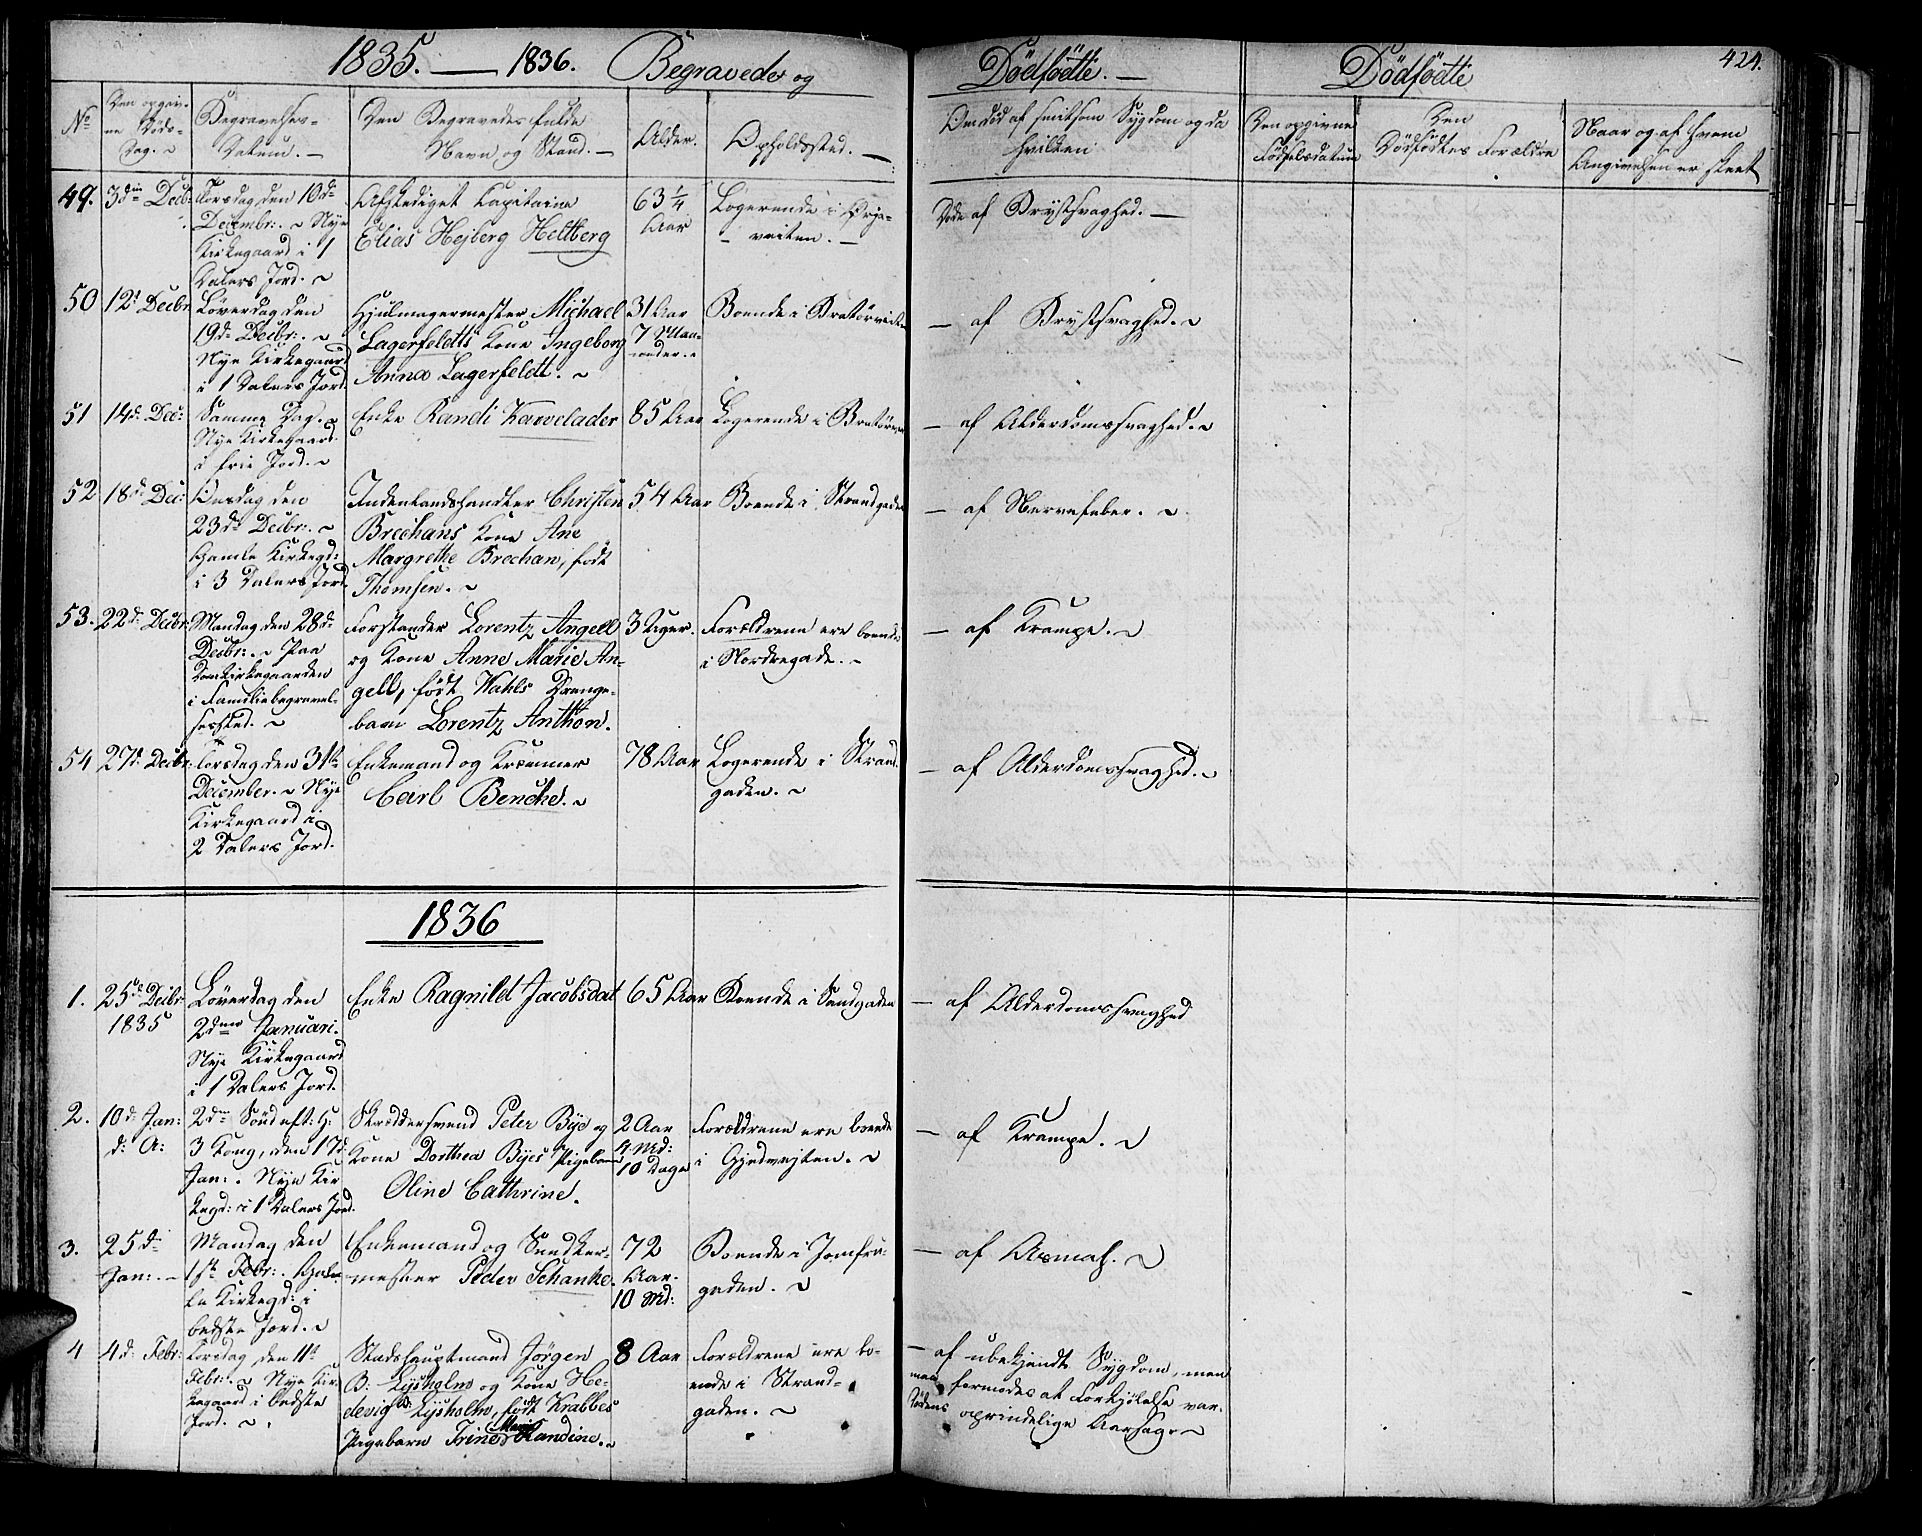 1835. — 1836. Begravede og Dödfödte. — Dödfödte 424.
No
Den opgiv-
ne Döds-
Dag.
Begravelses-
Datum. —
Den Begravedes fulde
Navn og Stand. —
Alder.
Opholdssted. —
Om död af smitsom Sygdom og da
hvilken
Den opgivne
Födselsdatum
Den
Dödfödtes Forældre
Naar og af hvem
Angivelsen er skeet
49. 3die Decbr:
Torsdag den 10de
Decembr: Nye
Kirkegaard i 1
Dalers Jord.
Afskediget Capitaine
Elias Hejberg Heltberg
63 1/4
Aar
Logerende i
veiten. —
Döde af Brystsvaghed. —
50 12t Decbr
Löverdag den
19de Decbr:
Nye Kirkegaard
i 1 Dalers Jord.
Hjulmagermester Michael
Lagerfeldts Kone Ingeborg
Anna Lagerfeldt.
31 Aar
7 Maa-
neder.
Boende i Bratörveiten
— af Brystsvaghed.
51 14de Dec:
Samme Dag.
Nye Kirkegaard
i frie Jord.
Enke Randi Karvelader
85 Aar
Logerende i
— af Alderdomssvaghed.
52 18de Dec:
Onsdag den
23de Decbr:
Gamle Kirkegd:
i 3 Dalers Jord
Indenlandshandler Christen
Brechans Kone Ane
Margrethe Brechan, födt
Thomsen.
54 Aar
Boende i Strandgaden
— af Nervefeber.
53. 22de Decbr:
Mandag den 28de
Decbr: Paa
Domkirkegaarden
i Familiebegravel-
sessted.
Forstander Lorentz Angell
og Kone Anne Marie An-
gell, födt Wahls Drenge-
barn Lorentz Anthon.
3 Uger.
Forældrene ere boende
i Nordregade.
— af Krampe.
54 27de Decbr:
Torsdag den 31te
December. Nye
Kirkegaard i
2 Dalers Jord.
Enkemand og Kræmmer
Carl Benche.
78 Aar
Logerende i Strand
gaden.
— af Alderdomssvaghed.
1836
1. 25de Decbr:
1835
Löverdag den
2den Januari.
Nye Kirkegaard
i 1 Dalers Jord.
Enke Ragnild Jacobsdat
65 Aar
Boende i Sandgaden
— af Alderdomssvaghed
2. 10de Jan:
d: A:
2den Sönd eft: H:
3 Kong, den 17de
Jan: Nye Kir
kegd: i 1 Dalers Jord.
Skræddersvend Peter Bye og
Kone Dorthea Byes Pigebarn
Oline Cathrine.
2 Aar
4 Md:
10 Dage
Forældrene ere boende
i Gjedvejten.
— af Krampe.
3. 25de
Jan: —
Mandag den
1ste Febr: Gam
le Kirkegd: i
bedste Jord.
Enkemand og
mester Peder Schanke.
72
Aar.
10 Md:
Boende i Jomfru-
gaden.
— af Asmah.
4 4de Febr:
Torsdag den 11te
Febr: Nye Kir
kegaard i bedste
Jord.
Stadshauptmand Jörgen
B: Lysholm og Kone He-
devig Lysholm, födt Krabbes
Pigebarn Trine Marie Handine.
8 Aar
Forældrene ere bo-
ende i Strand-
gaden.
— af ubekjendt Sygdom, men
man formodes at Forkjölelse var
Dödens oprindelige Aarsag.